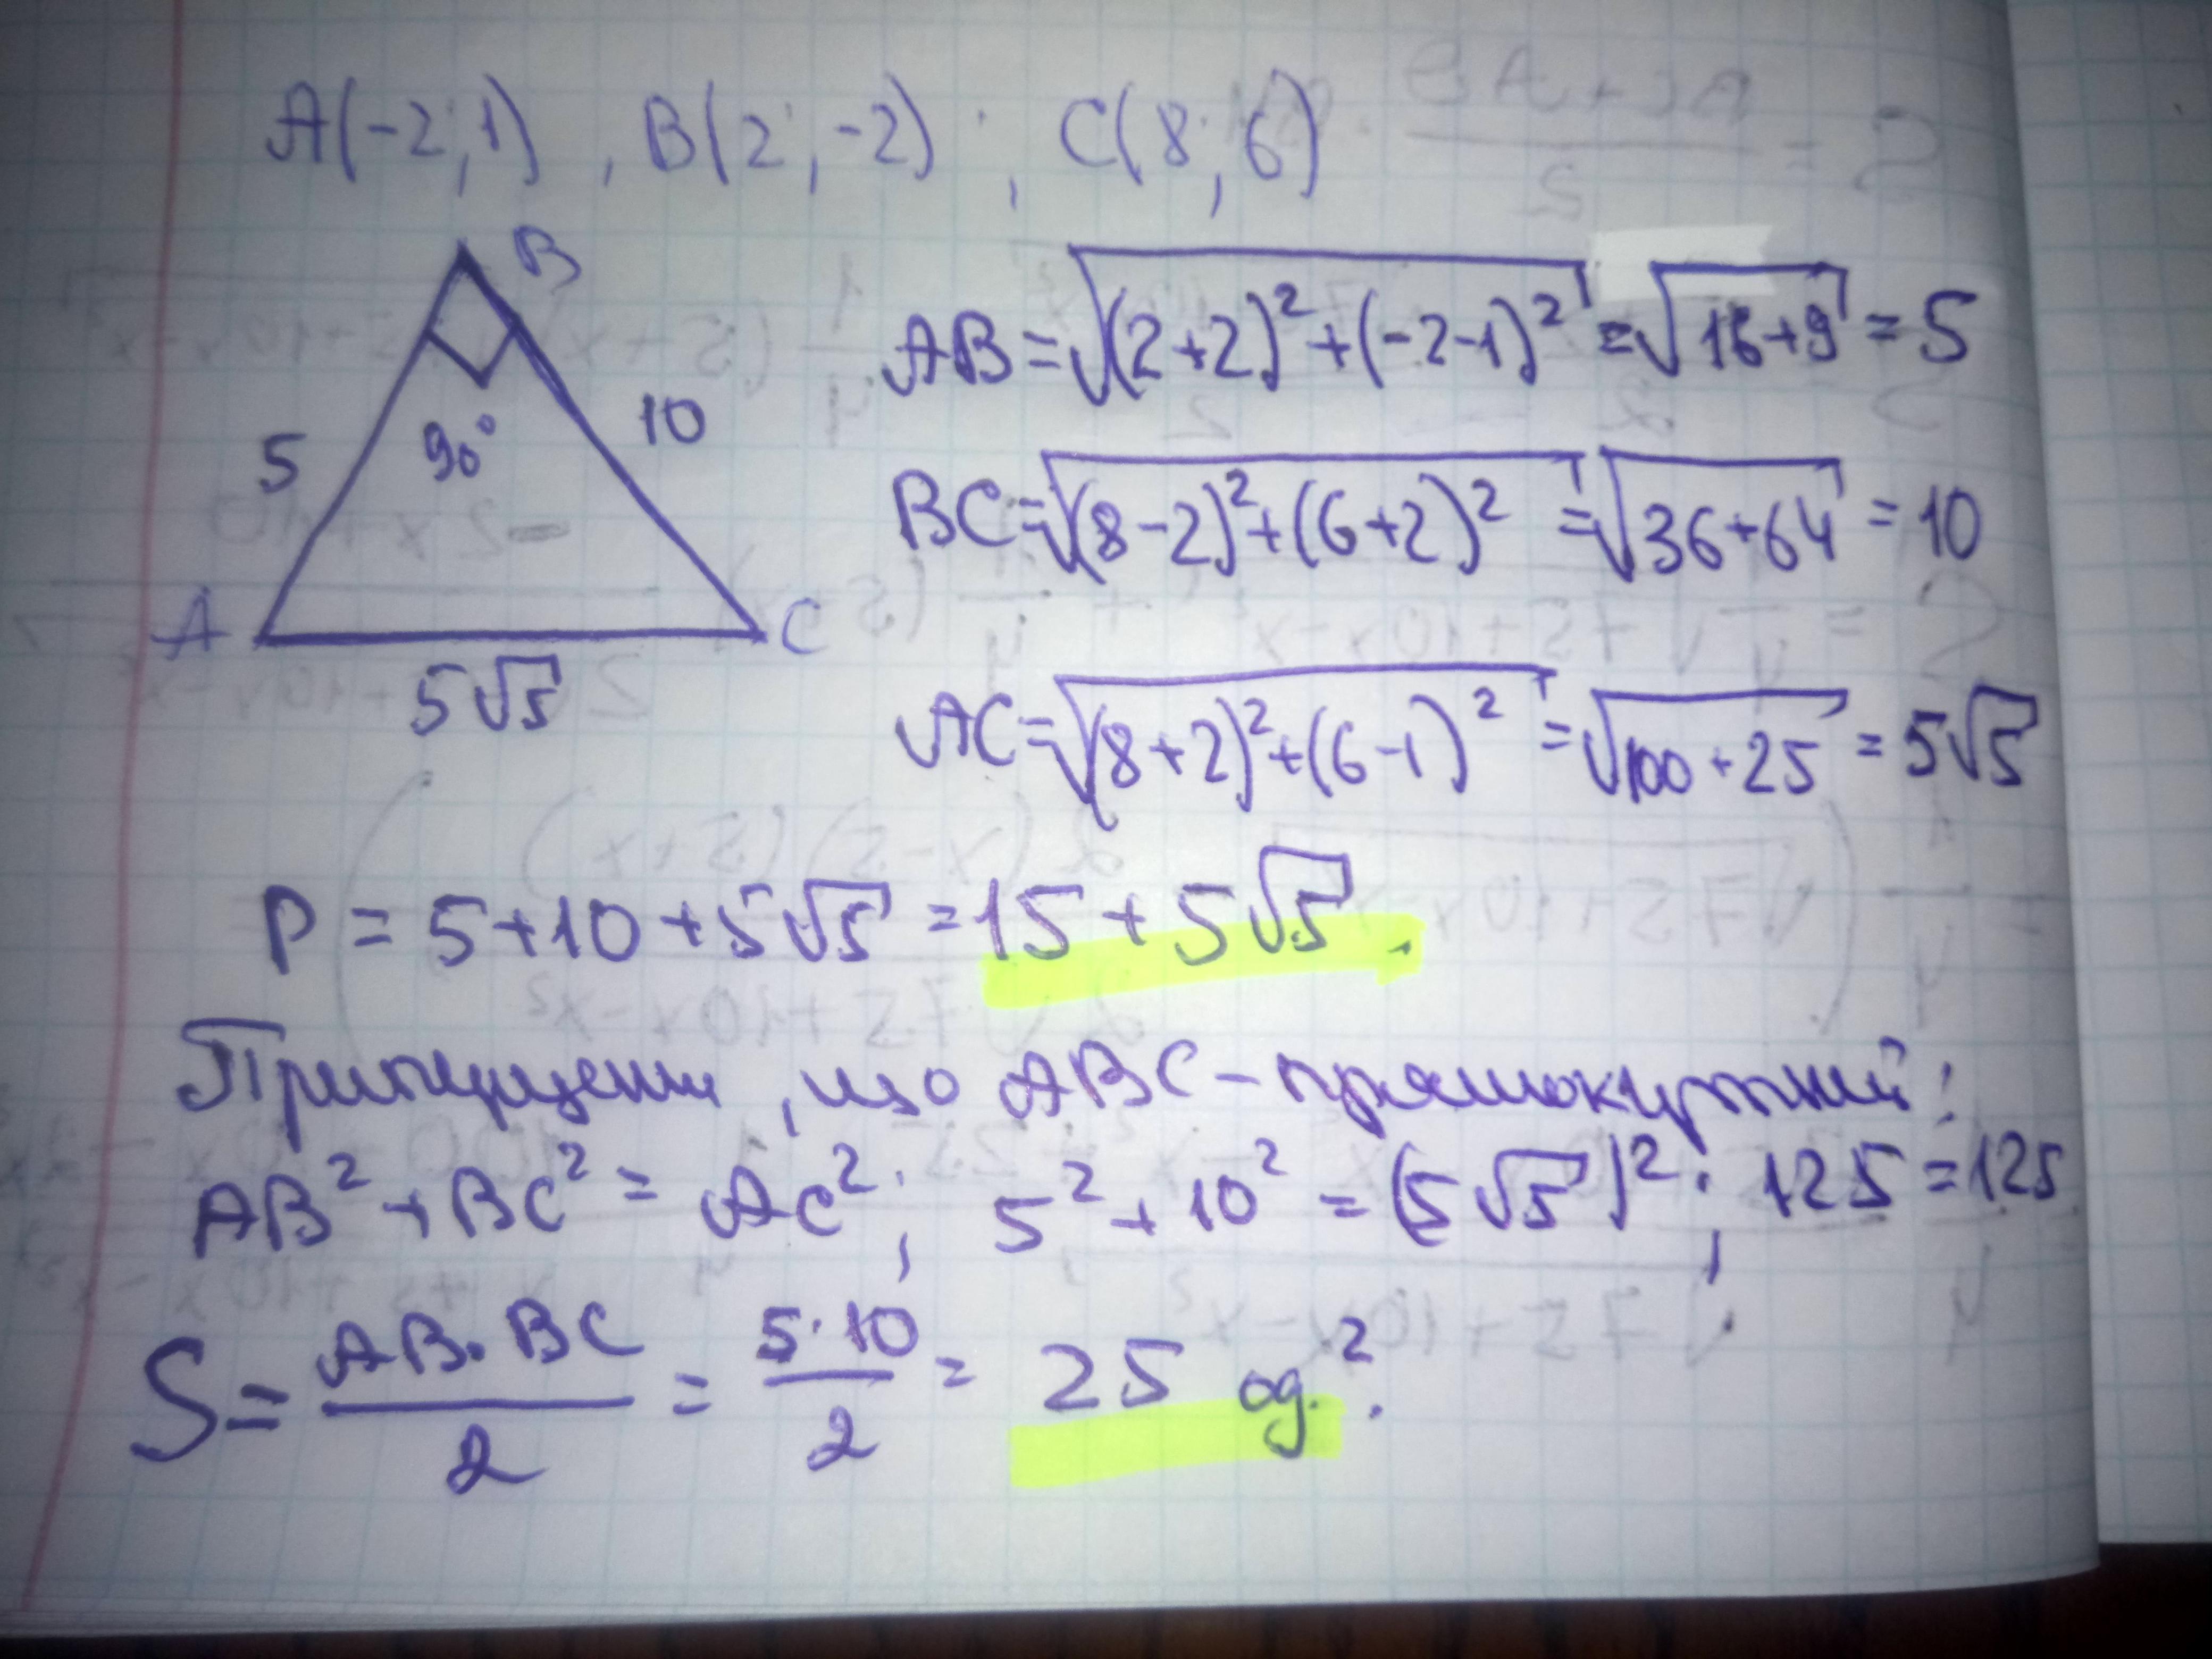 A(-2;1), B(2;-2); C(8;6)
B
5
90°
10
A
C
5√5
AB=√((2+2)²+(-2-1)²)=√(16+9)=5
BC=√((8-2)²+(6+2)²)=√(36+64)=10
AC=√((8+2)²+(6-1)²)=√(100+25)=5√5
P=5+10+5√5=15+5√5.
Припущення, що ABC-прямокутний:
AB²+BC²=AC²; 5²+10²=(5√5)²; 125=125
S=AB·BC/2=5·10/2=25 од.².